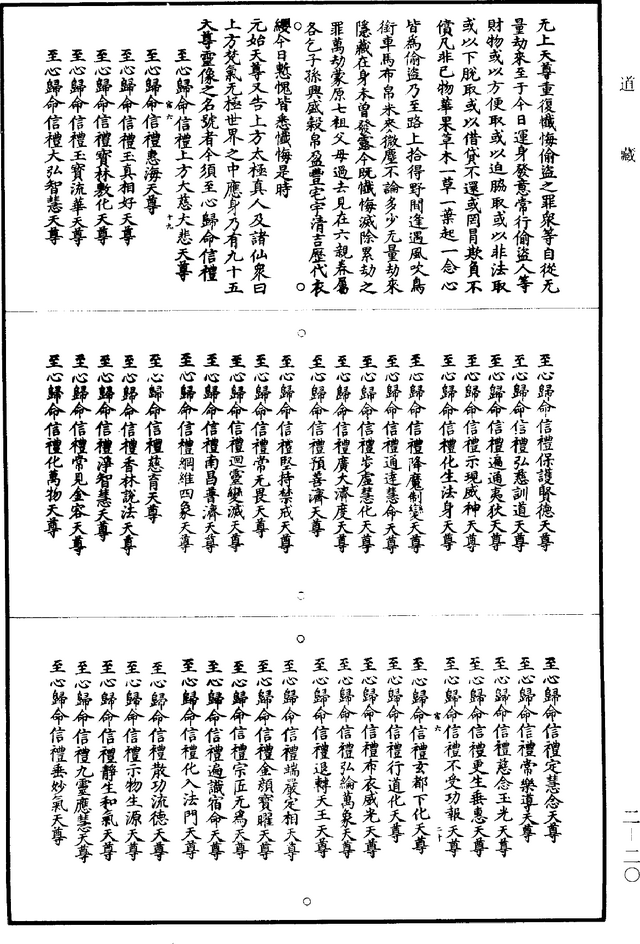 道藏
无上天尊重復懺悔偷盜之罪衆等自從无
量劫來至于今日運身發意常行偷盜人等
財物或以方便取或以迫脇取或以非法取
或以下脫取或以借貸不還或罔冐欺負不
償凡非己物華果草木一草一葉起一念心
皆為偷盜乃至路上拾得野間逢遇風吹鳥
銜車馬布帛米麥微塵不論多少无量劫來
隱藏在身本曾發露今既懺悔滅除累劫之
罪萬劫蒙原七祖父母過去見在六親眷屬
各乞子孫興盛穀帛盈豐宅宇清吉歷代衣
纓今日慙愧皆悉懺悔是時
元始天尊又告上方太極真人及諸仙衆曰
上方梵氣无極世界之中應身乃有九十五
天尊靈像之名號者今須至心歸命信禮
至心歸命信禮上方大慈大悲天尊
宮六
十九
至心歸命信禮惠海天尊
至心歸命信禮玉真相好天尊
至心歸命信禮寶林數化天尊
至心歸命信禮玉寶流華天尊
至心歸命信禮大弘智慧天尊
至心歸命信禮保護賢德天尊
至心歸命信禮弘慈訓道天尊
至心歸命信禮遍通夷狄天尊
至心歸命信禮示現威神天尊
至心歸命信禮化生法身天尊
至心歸命信禮降魔制變天尊
至心歸命信禮通達慧命天尊
至心歸命信禮步虛慧化天尊
至心歸命信禮廣大濟度天尊
至心歸命信禮預善濟天尊
至心歸命信禮堅持禁戒天尊
至心歸命信禮常无畏天尊
至心歸命信禮迴靈變減天尊
至心歸命信禮南昌普濟天尊
至心歸命信禮綱維四象天尊
至心歸命信禮慈育天尊
至心歸命信禮香林說法天尊
至心歸命信禮淨智慧天尊
至心歸命信禮常見金容天尊
至心歸命信禮化萬物天尊
至心歸命信禮定慧念天尊
至心歸命信禮常樂導天尊
至心歸命信禮慈念玉光天尊
至心歸命信禮更生垂惠天尊
至心歸命信禮不受功報天尊
宮六
二十
至心歸命信禮玄都下化天尊
至心歸命信禮行道化天尊
至心歸命信禮布衣威光天尊
至心歸命信禮弘綸萬象天尊
至心歸命信禮退轉天王天尊
至心歸命信禮端嚴定相天尊
至心歸命信禮金顏寶曜天尊
至心歸命信禮宗匠元為天尊
至心歸命信禮遍識宿命天尊
至心歸命信禮化入法門天尊
至心歸命信禮散功流德天尊
至心歸命信禮示物生源天尊
至心歸命信禮靜生和氣天尊
至心歸命信禮九靈應慧天尊
至心歸命信禮垂妙氣天尊
二—二〇